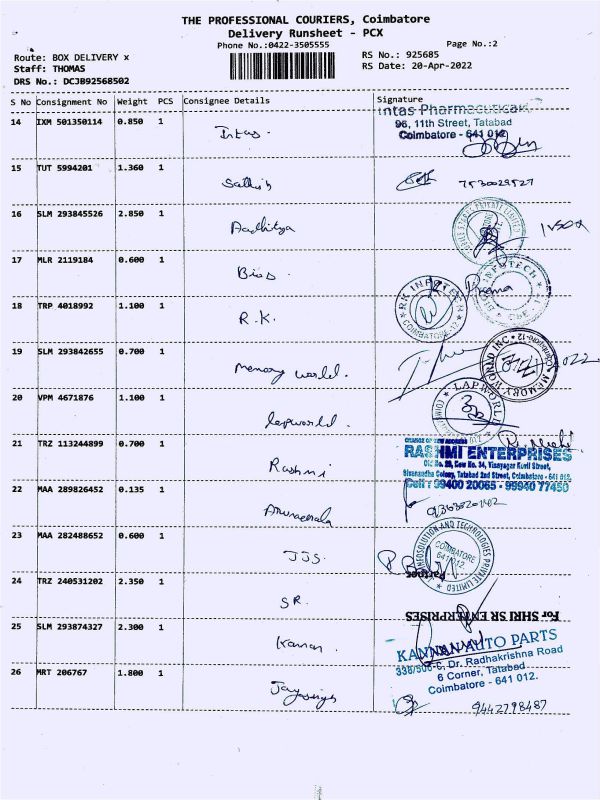 THE PROFESSIONAL COURIERS, Coimbatore
Delivery Runsheet - PCX
Phone No.:0422-3505555
Page No.:2
Route: BOX DELIVERY x
RS No.: 925685
Staff: THOMAS
RS Date: 20-Apr-2022
DRS No.: DCJB92568502
S No Consignment No Weight PCS Consignee Details Signature
14 IXM 501350114 0.850 1 Intas. Intas Pharmaceuticals
96, 11th Street, Tatabad
Coimbatore - 641 012
15 TUT 5994201 1.360 1 Sathish 7530029527
16 SLM 293845526 2.850 1 Aadhitya
17 MLR 2119184 0.600 1 Bios. Prema
18 TRP 4018992 1.100 1 R.K. RK INFOTECH
COIMBATORE-12
19 SLM 293842655 0.700 1 Memory world. MEMORY WORLD INC
Coimbatore-12
20 VPM 4671876 1.100 1 Lapworld. LAPWORLD
21 TRZ 113244899 0.700 1 Rashmi CHANGE OF NEW ADDRESS
RASHMI ENTERPRISES
Old No. 28, New No. 34, Vinayagar Kovil Street,
Sivanandha Colony, Tatabad 2nd Street, Coimbatore - 641 012.
Cell : 99400 20065 - 99940 77450
22 MAA 289826452 0.135 1
23 MAA 282488652 0.600 1 JJS. INFOSOLUTION AND TECHNOLOGIES PRIVATE LIMITED
COIMBATORE
641 012
Partner
24 TRZ 240531202 2.350 1 SR. For SHRI SR ENTERPRISES
25 SLM 293874327 2.300 1 Kannan. KANNAN AUTO PARTS
336/506-C, Dr. Radhakrishna Road
6 Corner, Tatabad
Coimbatore - 641 012.
26 MRT 206767 1.800 1 Jaysingh 9442798487